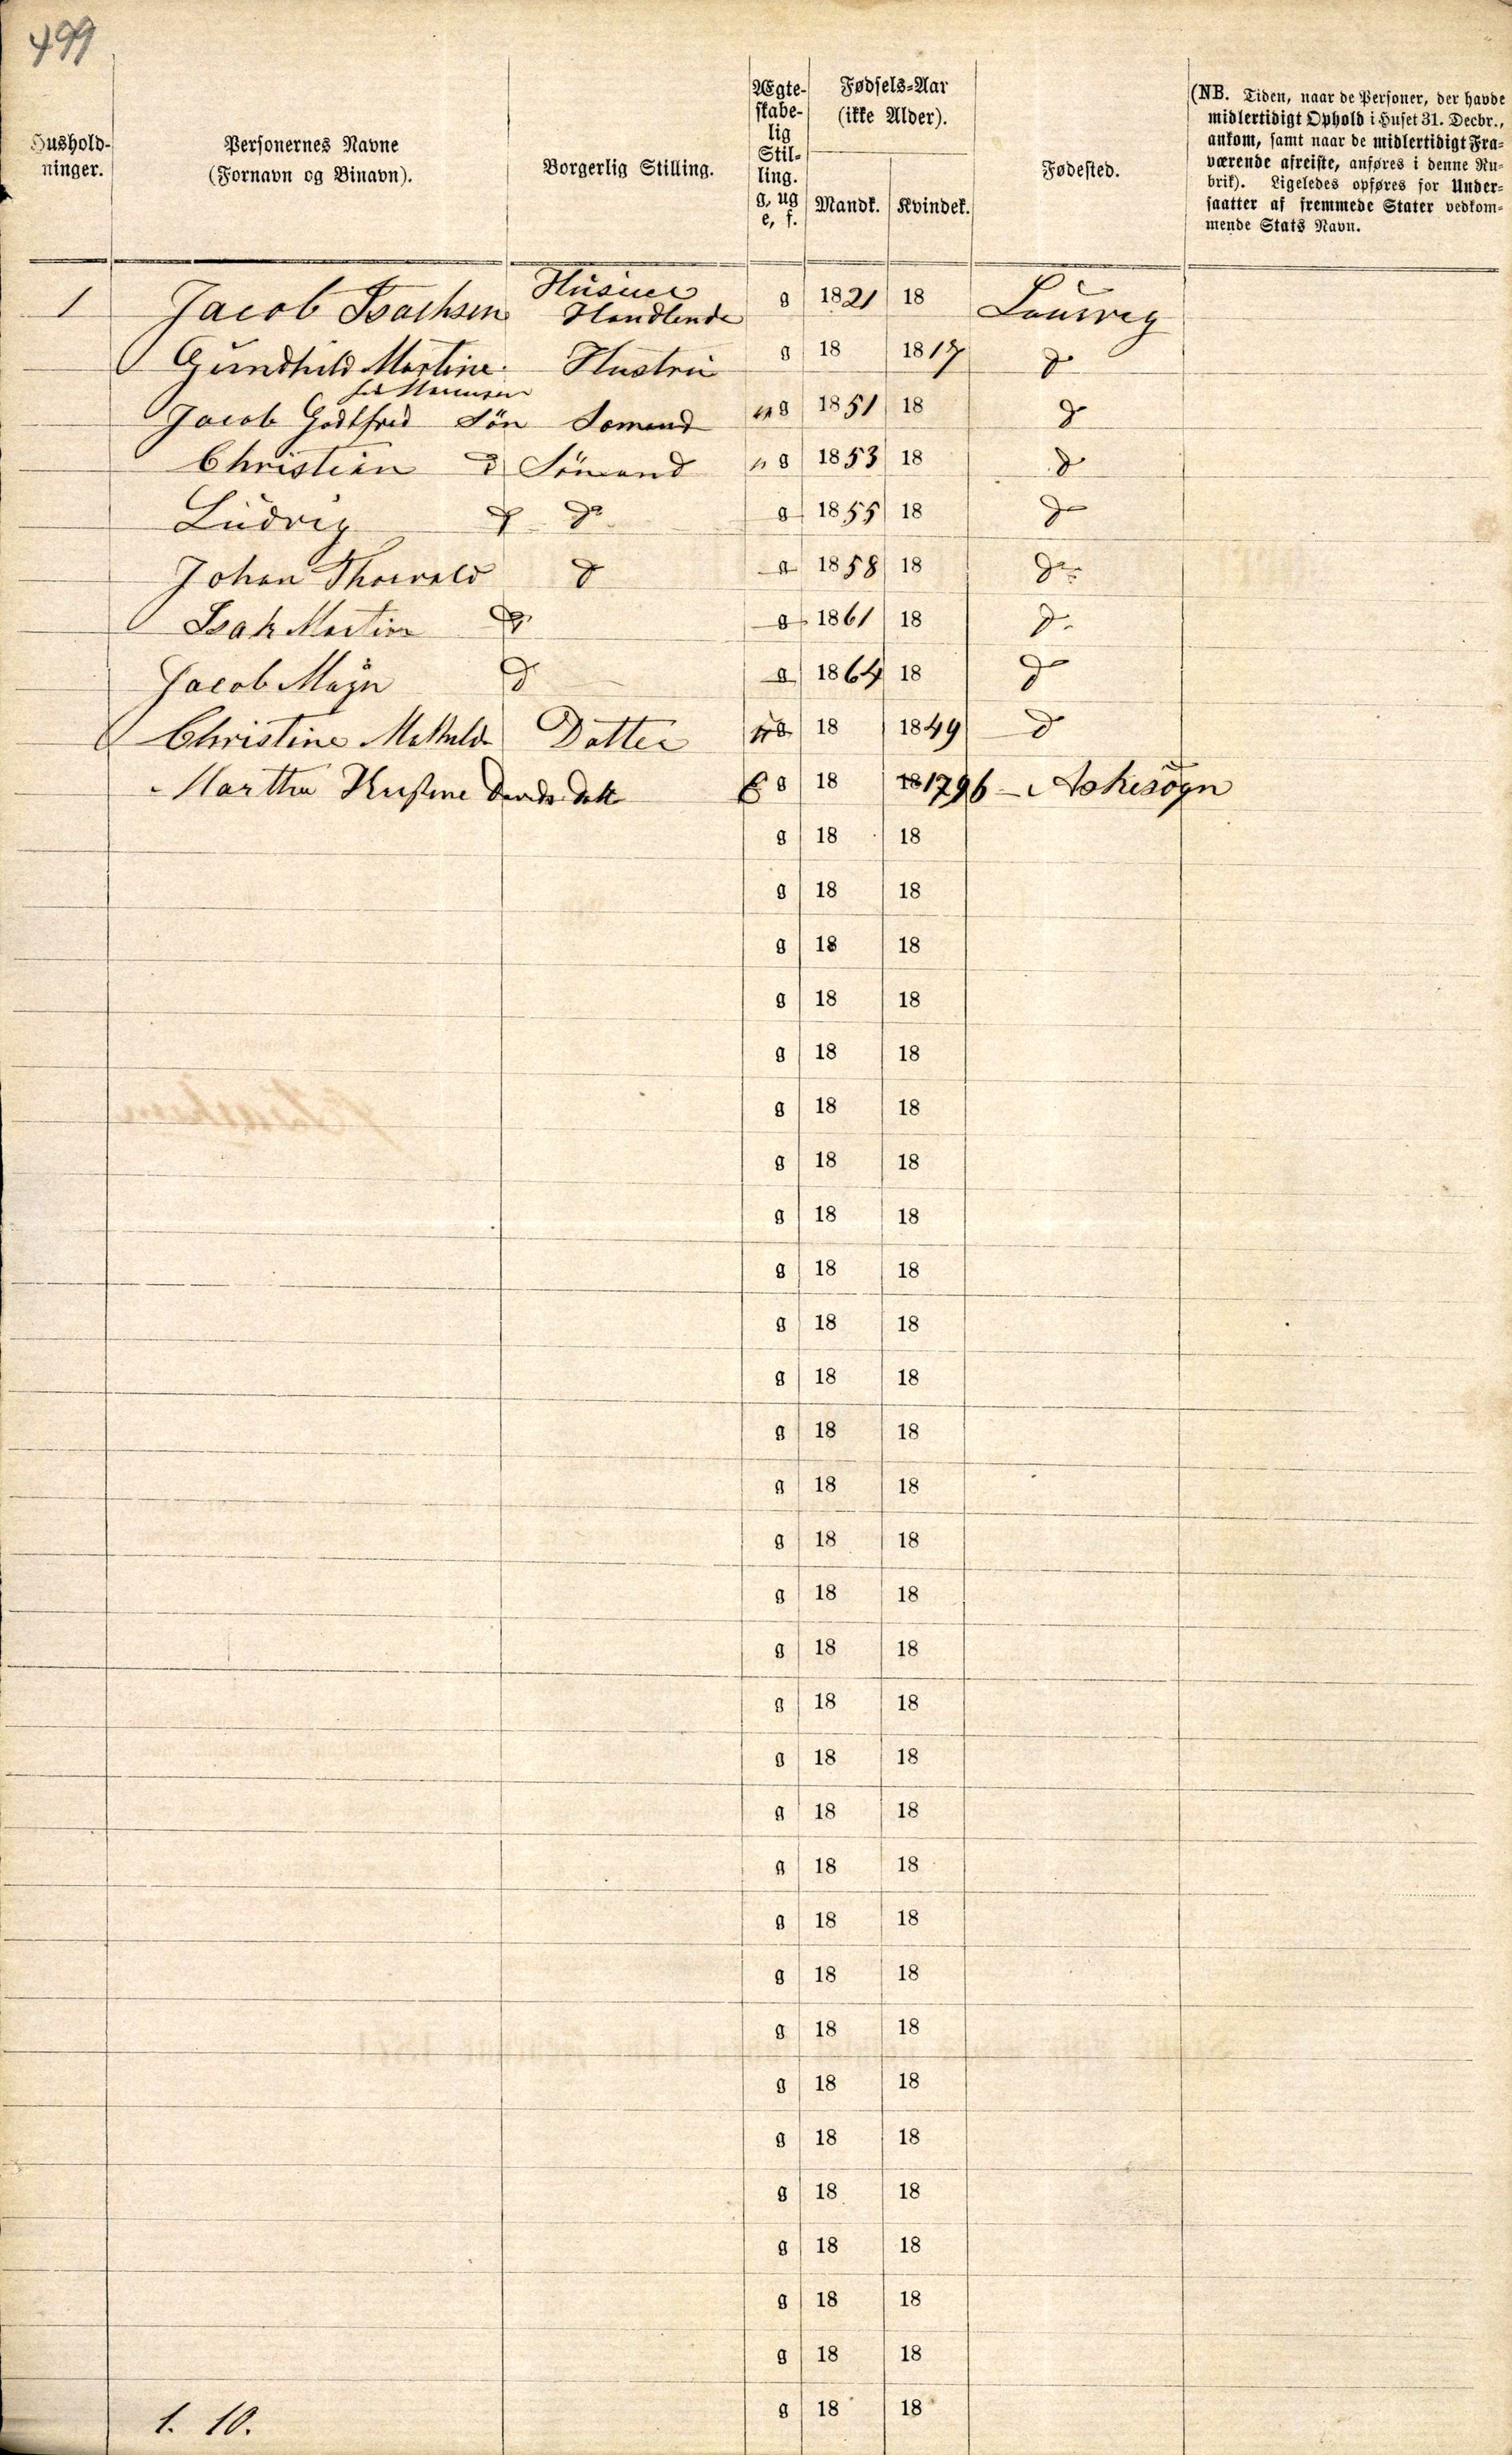 499
Hushold-
ninger.
Personernes Navne
(Fornavn og Binavn).
Borgerlig Stilling.
Ægte-
skabe-
lig
Stil-
ling.
g, ug
e, f.
Fødsels-Aar
(ikke Alder).
Mandk. Kvindek.
Fødested.
(NB. Tiden, naar de Personer, der havde
midlertidigt Ophold i Huset 31. Decbr.,
ankom, samt naar de midlertidigt Fra-
værende afreiste, anføres i denne Ru-
brik). Ligeledes opføres for Under-
saatter af fremmede Stater vedkom-
mende Stats Navn.
Huseier
1 Jacob Isachsen Handlende g 1821 18 Laurvig
Gundhild Martine Hustru g 18 1817 do
Jacob Godtfred Sön Sömand ug 1851 18 do
Christian do Sömand ug 1853 18 do
Ludvig do do g 1855 18 do
Johan Thorvald do g 1858 18 do
Isak Martin do g 1861 18 do
Jacob Magn do g 1864 18 do
Christine Mathilde Datter ug 18 1849 do
Marthe Kristine Davids Datt E g 18 18 1796 - Askesogn
g 18 18
g 18 18
g 18 18
g 18 18
g 18 18
g 18 18
g 18 18
g 18 18
g 18 18
g 18 18
g 18 18
g 18 18
g 18 18
g 18 18
g 18 18
g 18 18
g 18 18
g 18 18
g 18 18
g 18 18
g 18 18
g 18 18
g 18 18
g 18 18
g 18 18
g 18 18
g 18 18
g 18 18
g 18 18
g 18 18
1. 10.